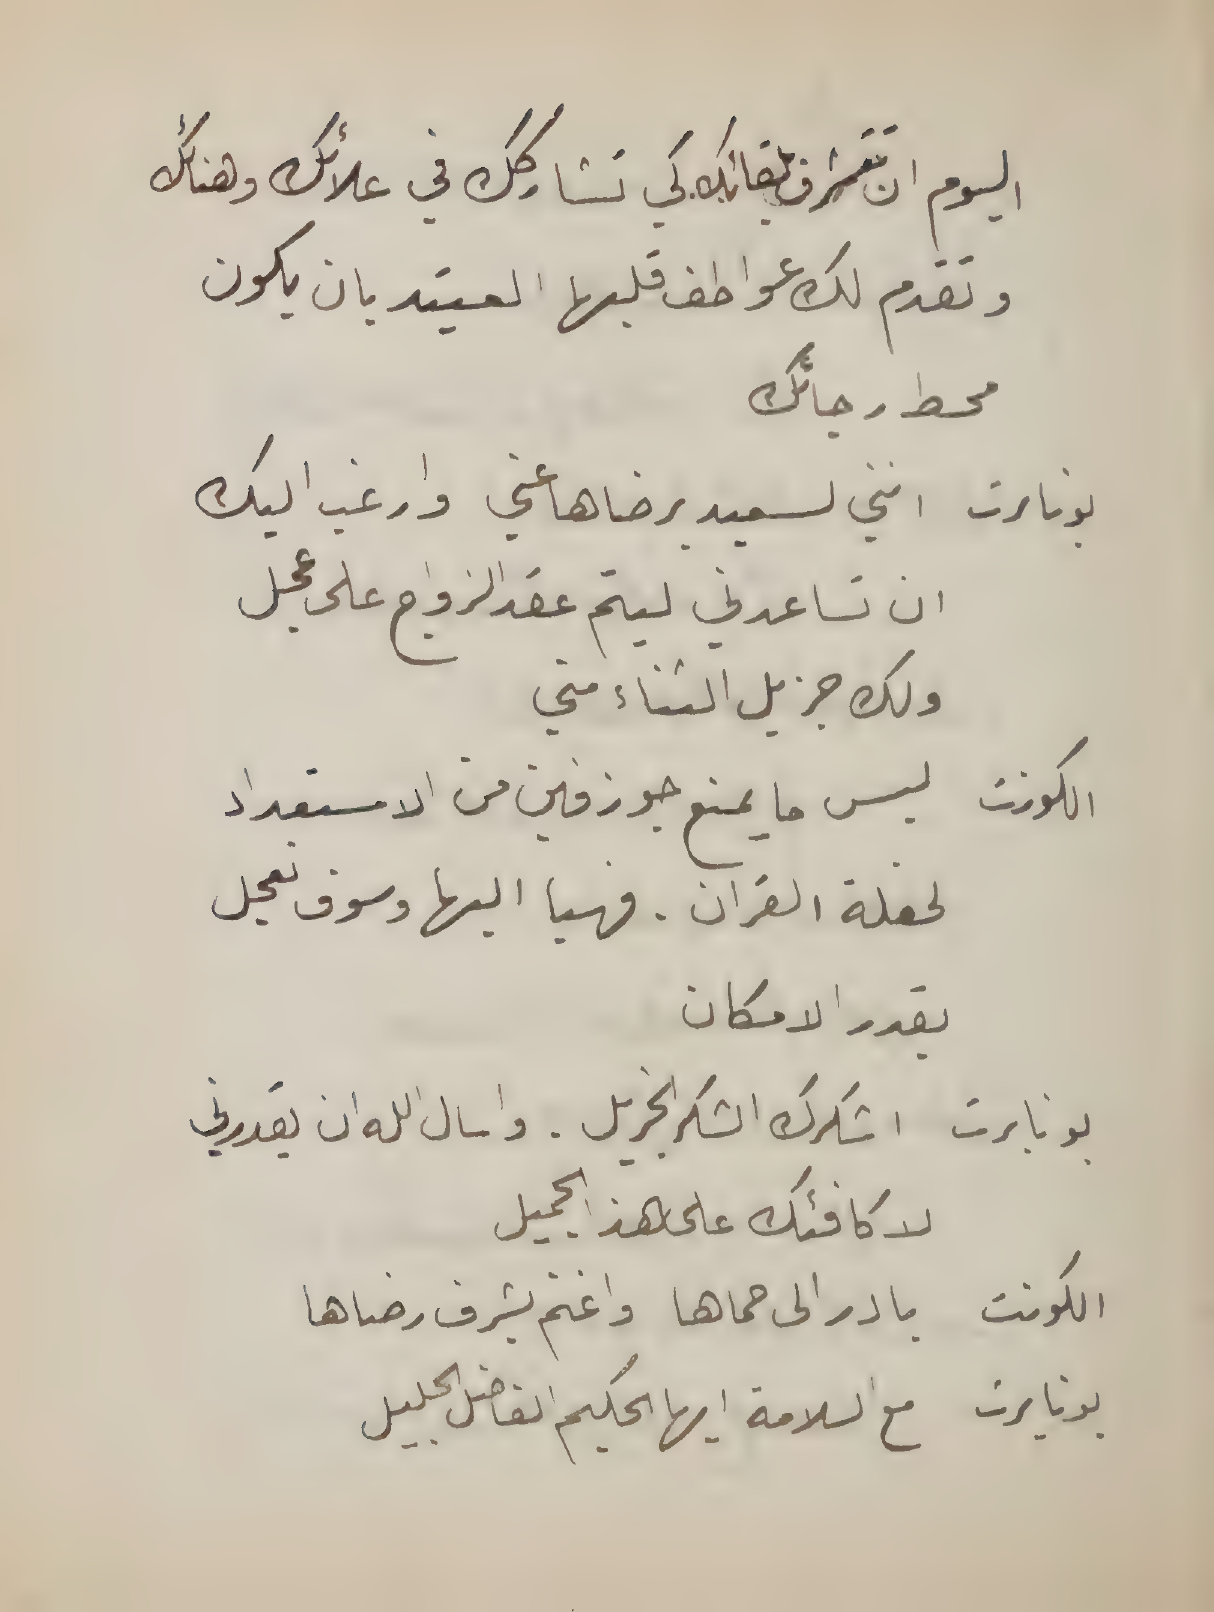 اليوم ان تتشرف بلقائك كي تشاركك في علائك وهنائك
وتقدم لك عواطف قلبها العتيد بان يكون
محط رجائك
بونابرت انني لسعيد برضاها عني وارغب اليك
ان تساعدني ليتم عقد الزواج على عجل
ولك جزيل الثناء مني
الكونت ليس ما يمنع جوزفين من الاستعداد
لحفلة القران . فهيا اليها وسوف نعجل
بقدر الامكان
بونابرت اشكرك الشكر الجزيل . واسال الله ان يقدرني
لاكافئك على هذا الجميل
الكونت بادر الى حماها واغتنم بشرف رضاها
بونابرت مع السلامة ايها الحكيم الفاضل الجليل